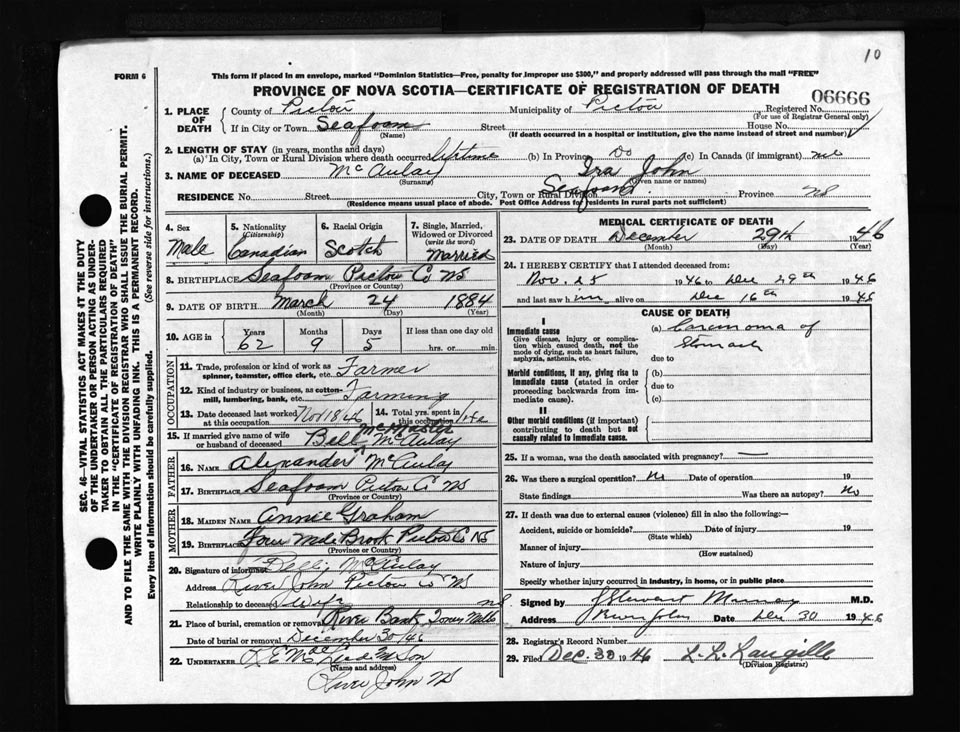 10
FORM 6
This form if placed in an envelope, marked "Dominion Statistics—Free, penalty for improper use $300," and properly addressed will pass through the mail "FREE"
PROVINCE OF NOVA SCOTIA—CERTIFICATE OF REGISTRATION OF DEATH
06666
1. PLACE OF DEATH
County of Pictou Municipality of Pictou Registered No.
(For use of Registrar General only)
If in City or Town Seafoam Street House No.
(Name) (If death occurred in a hospital or institution, give the name instead of street and number)
2. LENGTH OF STAY (in years, months and days)
(a) In City, Town or Rural Division where death occurred lifetime (b) In Province Do (c) In Canada (if immigrant)
3. NAME OF DECEASED McAulay Ira John
(Surname) (Given name or names)
RESIDENCE No. Street City, Town or Rural Division Seafoam Province NS
(Residence means usual place of abode. Post Office Address for residents in rural parts not sufficient)
4. Sex Male
5. Nationality (Citizenship) Canadian
6. Racial Origin Scotch
7. Single, Married, Widowed or Divorced (write the word) Married
8. BIRTHPLACE Seafoam Pictou Co NS
(Province or Country)
9. DATE OF BIRTH March 24 1884
(Month) (Day) (Year)
10. AGE in Years Months Days If less than one day old
62 9 5 hrs. or min.
OCCUPATION
11. Trade, profession or kind of work as spinner, teamster, office clerk, etc. Farmer
12. Kind of industry or business, as cotton-mill, lumbering, bank, etc. Farming
13. Date deceased last worked at this occupation Nov 18 46
14. Total yrs. spent in this occupation life
15. If married give name of wife or husband of deceased Bell McMaster McAulay
FATHER
16. NAME Alexander McAulay
17. BIRTHPLACE Seafoam Pictou Co NS
(Province or Country)
MOTHER
18. MAIDEN NAME Annie Graham
19. BIRTHPLACE Four Mile Brook Pictou Co NS
(Province or Country)
20. Signature of informant McAulay
Address River John Pictou Co NS
Relationship to deceased Wife
21. Place of burial, cremation or removal River Bank Toney Mills NS
Date of burial or removal December 30/46
22. UNDERTAKER Son
(Name and address)
River John NS
MEDICAL CERTIFICATE OF DEATH
23. DATE OF DEATH December 29th 1946
(Month) (Day) (Year)
24. I HEREBY CERTIFY that I attended deceased from:
Nov. 25 1946 to Dec 29th 1946
and last saw him alive on Dec 16th 1946
CAUSE OF DEATH
I
Immediate cause
Give disease, injury or complication which caused death, not the mode of dying, such as heart failure, asphyxia, asthenia, etc.
(a) Carcinoma of Stomach
due to
Morbid conditions, if any, giving rise to immediate cause (stated in order proceeding backwards from immediate cause).
(b)
due to
(c)
II
Other morbid conditions (if important) contributing to death but not causally related to immediate cause.
25. If a woman, was the death associated with pregnancy? —
26. Was there a surgical operation? No Date of operation 19
State findings Was there an autopsy? No
27. If death was due to external causes (violence) fill in also the following:—
Accident, suicide or homicide? Date of injury 19
(State which)
Manner of injury
(How sustained)
Nature of injury
Specify whether injury occurred in industry, in home, or in public place
Signed by J Stewart Murray M.D.
Address River John Date Dec 30 1946
28. Registrar's Record Number
29. Filed Dec. 30 1946 L. L. Langille
(Division Registrar)
SEC. 46—VITAL STATISTICS ACT MAKES IT THE DUTY
OF THE UNDERTAKER OR PERSON ACTING AS UNDER-
TAKER TO OBTAIN ALL THE PARTICULARS REQUIRED
IN THE "CERTIFICATE OF REGISTRATION OF DEATH"
AND TO FILE THE SAME WITH THE DIVISION REGISTRAR WHO SHALL ISSUE THE BURIAL PERMIT.
WRITE PLAINLY WITH UNFADING INK. THIS IS A PERMANENT RECORD.
Every item of information should be carefully supplied. (See reverse side for instructions.)